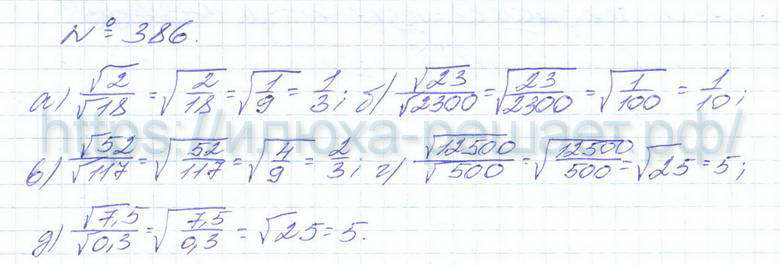 № 386.
а) √2/√18 = √(2/18) = √(1/9) = 1/3; б) √23/√2300 = √(23/2300) = √(1/100) = 1/10;
https://илюха-решает.рф/
в) √52/√117 = √(52/117) = √(4/9) = 2/3; г) √12500/√500 = √(12500/500) = √25 = 5;
д) √7,5/√0,3 = √(7,5/0,3) = √25 = 5.